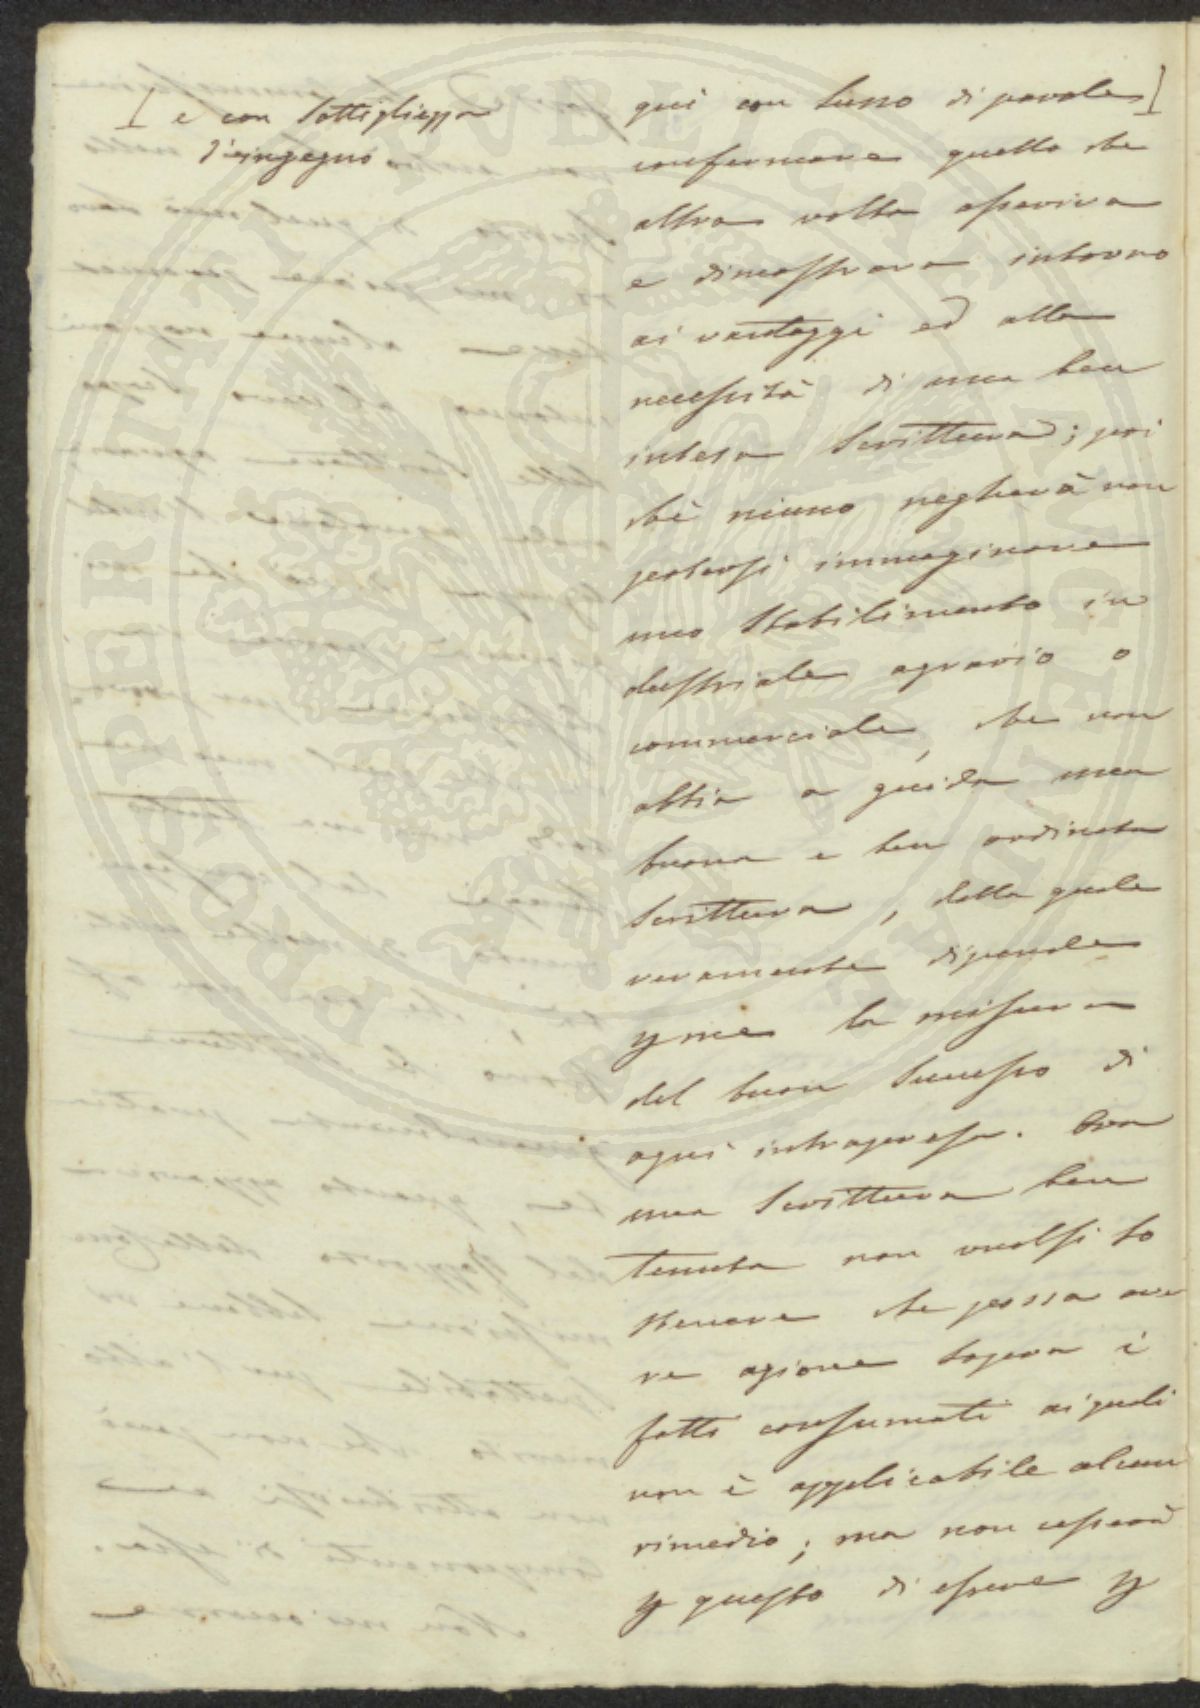 [ e con sottigliezza
d'ingegno
qui con lusso di parole]
confermare quello che
altra volta asseriva
e dimostrava intorno
ai vantaggi ed alla
necessità di una ben
intesa Scrittura; poi
chè niuno negherà non
potersi immaginare
uno Stabilimento in
dustriale agrario o
commerciale, che non
abbia a guida una
buona e ben ordinata
Scrittura, dalla quale
veramente dipende
la misura
del buon successo di
ogni intrapresa. Ora
una Scrittura ben
tenuta non vuolsi so
stenere che possa ave
re azione sopra i
fatti consumati ai quali
non è applicabile alcun
rimedio; ma non cesserà
p questo di essere p
PROSPERITATI PVBLICAE AVGENDAE